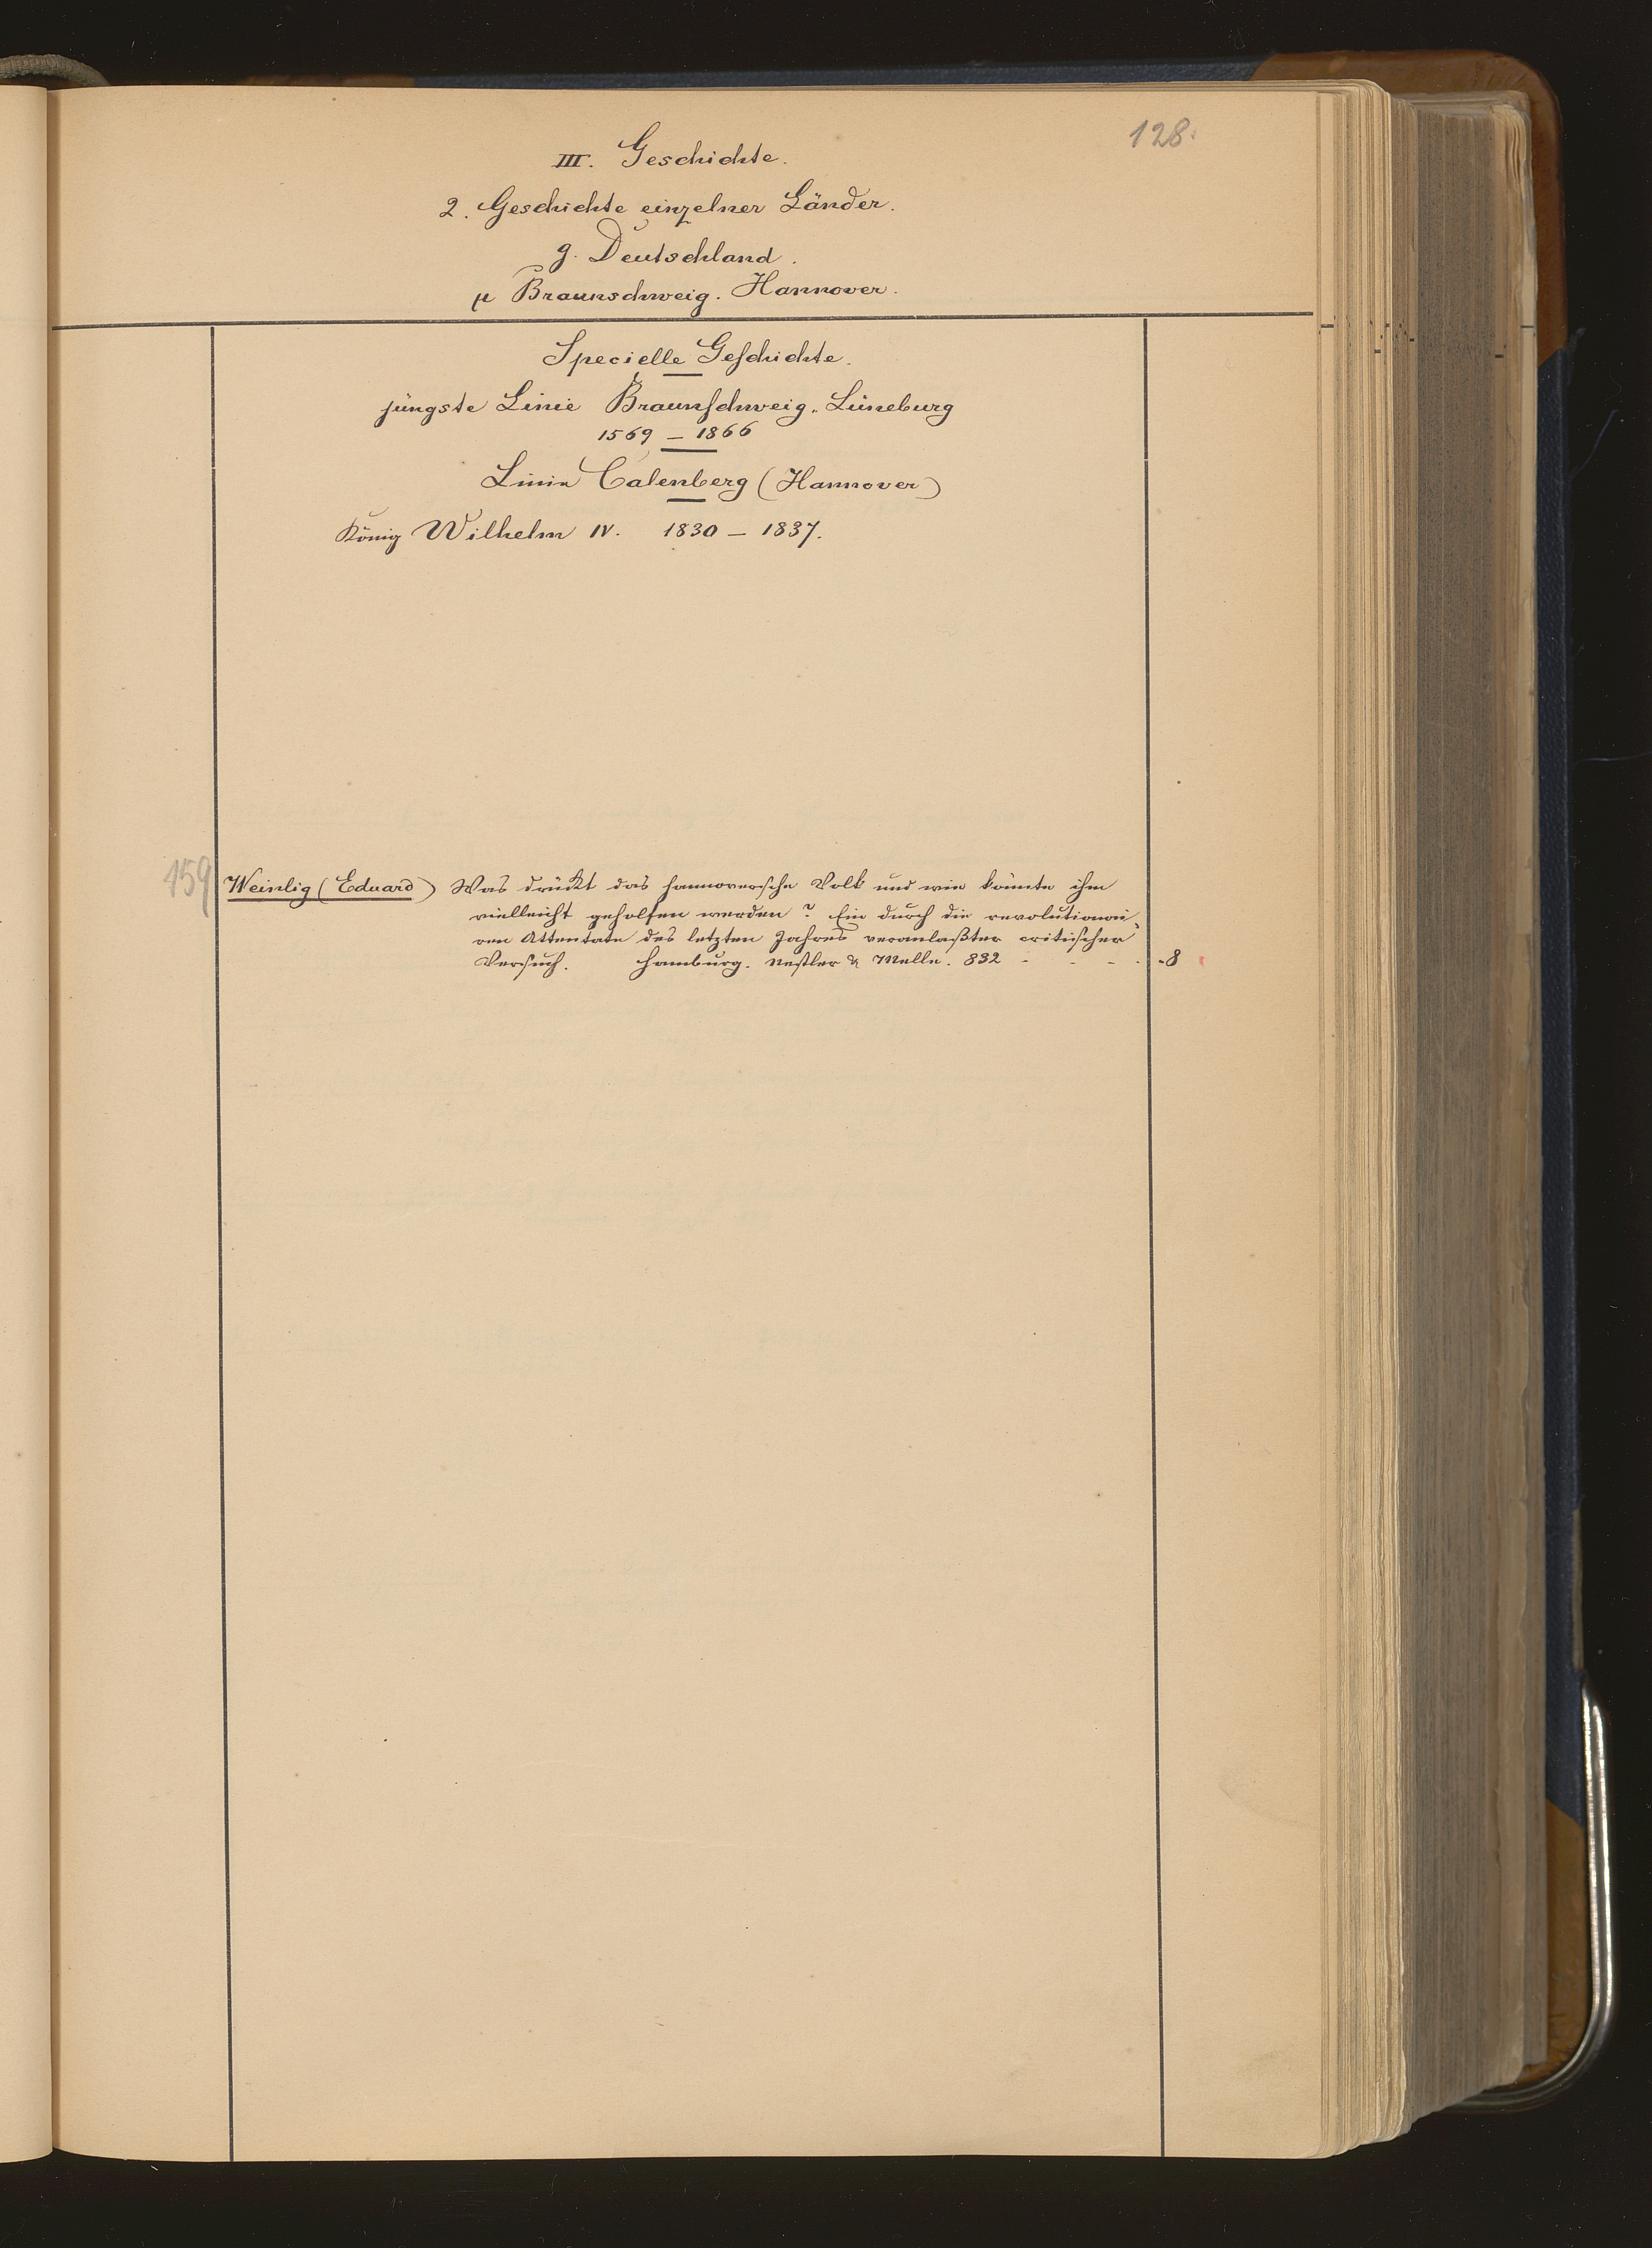 128.
III. Geschichte.
2. Geschichte einzelner Länder.
g. Deutschland.
µ Braunschweig. Hannover.
Specielle Geschichte.
jüngste Linie Braunschweig-Lüneburg
1569 – 1866
Linie Calenberg (Hannover)
König Wilhelm IV. 1830 – 1837.
159 Weinlig (Eduard) Was drückt das hannoversche Volk und wie könnte ihm
vielleicht geholfen werden? Ein durch die revolutionai-
ren Attentate des letzten Jahres veranlaßter critischer
Versuch. Hamburg. Nestler & Melle. 832 - - - - -8